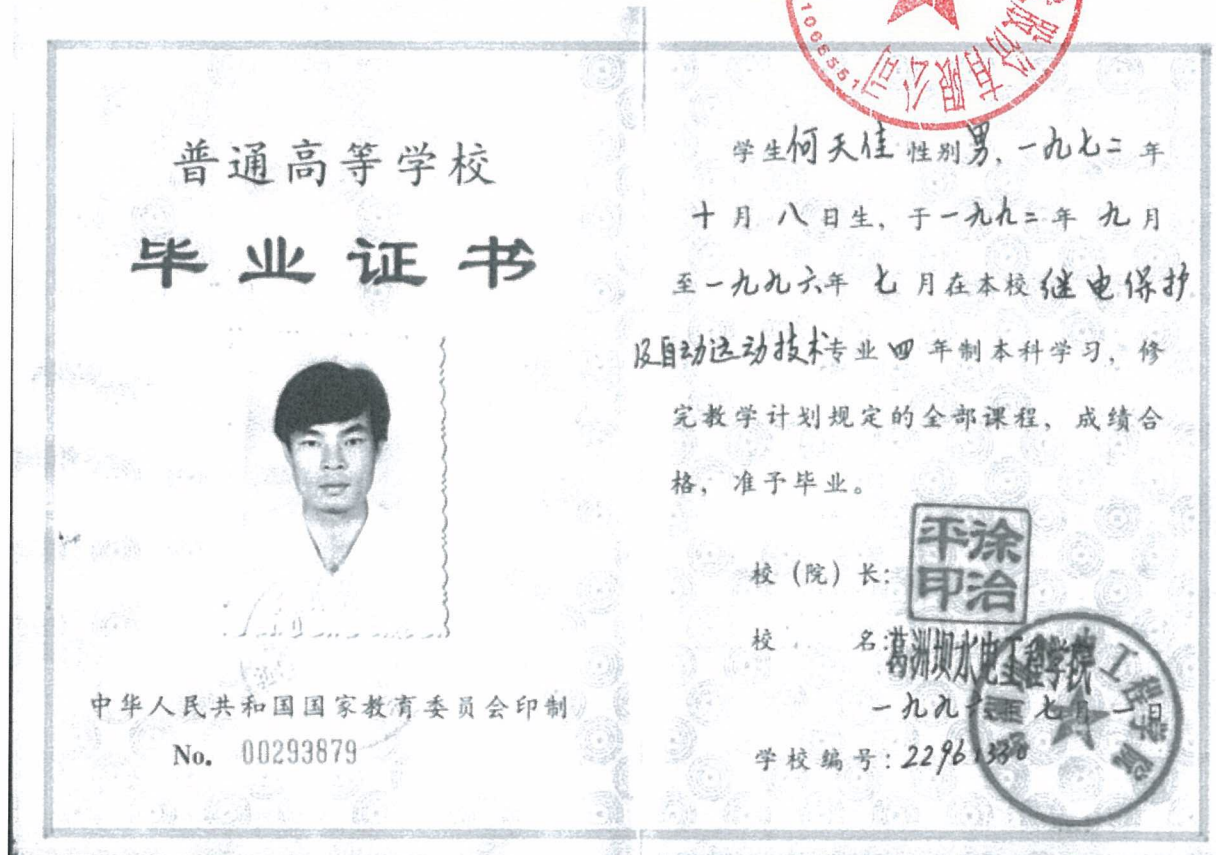 普通高等学校
毕业证书
中华人民共和国国家教育委员会印制
No. 00293879
股份有限公司
1066551
学生何天佳性别男,一九七二年
十月八日生,于一九九二年九月
至一九九六年七月在本校继电保护
及自动远动技术专业四年制本科学习,修
完教学计划规定的全部课程,成绩合
格,准予毕业。
校(院)长:
徐治平印
校名:葛洲坝水电工程学院
一九九六年七月一日
学校编号:22961330
工程学院